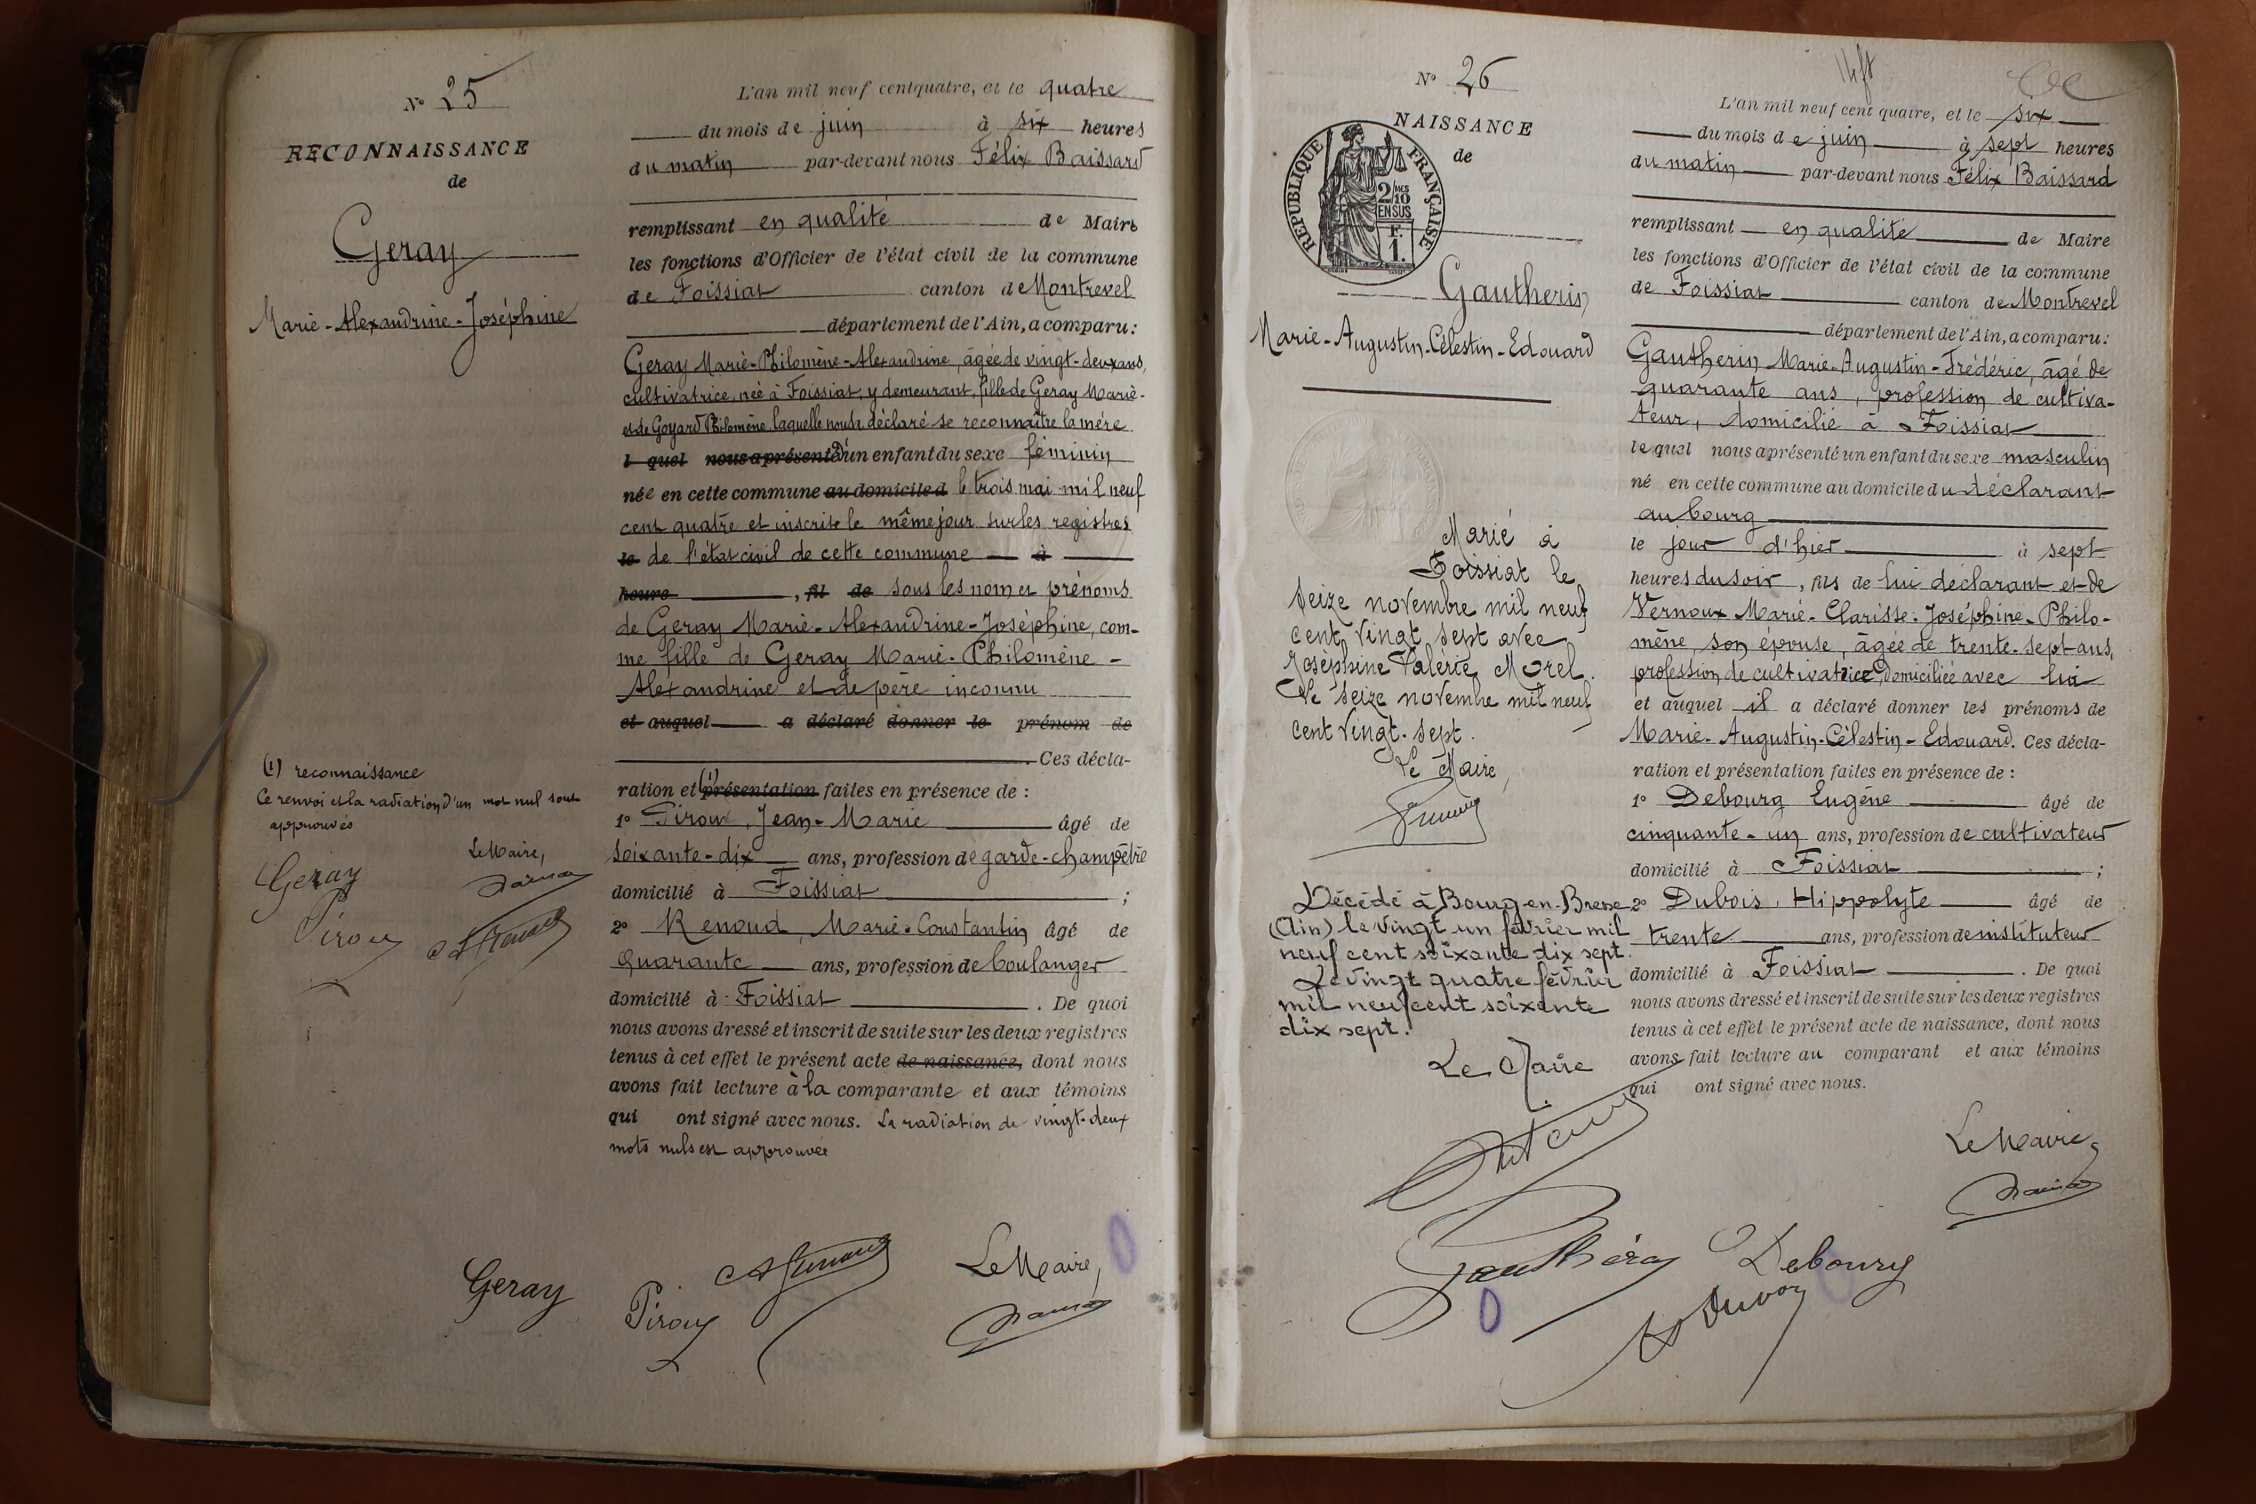 N° 25
RECONNAISSANCE
de
Geray
Marie-Alexandrine-Joséphine
(1) reconnaissance
Ce renvoi et la radiation d'un mot nul sont
approuvés
Le Maire,
Geray
Pirou
L'an mil neuf cent quatre, et le quatre
du mois de juin à six heures
du matin par-devant nous Félix Baissard
remplissant en qualité de Maire
les fonctions d'Officier de l'état civil de la commune
de Foissiat canton de Montrevel
département de l'Ain, a comparu:
Geray Marie-Philomène-Alexandrine, âgée de vingt-deux ans,
cultivatrice, née à Foissiat, y demeurant, fille de Geray Marie-
et de Goyard Philomène, laquelle nous a déclaré se reconnaître la mère
l quel nous a présenté d'un enfant du sexe féminin
née en cette commune au domicile d le trois mai mil neuf
cent quatre et inscrite le même jour sur les registres
le de l'état civil de cette commune à
heure , fil de sous les nom et prénoms
de Geray Marie-Alexandrine-Joséphine, com-
me fille de Geray Marie-Philomène-
Alexandrine et de père inconnu
et auquel a déclaré donner le prénom de
Ces décla-
ration et (1) présentation faites en présence de :
1° Pirou, Jean-Marie âgé de
soixante-dix ans, profession de garde-champêtre
domicilié à Foissiat ;
2° Renoud, Marie-Constantin âgé de
quarante ans, profession de boulanger
domicilié à Foissiat . De quoi
nous avons dressé et inscrit de suite sur les deux registres
tenus à cet effet le présent acte de naissance, dont nous
avons fait lecture à la comparante et aux témoins
qui ont signé avec nous. La radiation de vingt-deux
mots nuls est approuvée
Geray
Pirou
Le Maire,
N° 26
NAISSANCE
de
REPUBLIQUE FRANÇAISE
2/10 MES
EN SUS
F.
1.
Gautherin
Marie-Augustin-Célestin-Edouard
Marié à
Foissiat le
seize novembre mil neuf
cent vingt sept avec
Joséphine Valérie Morel.
Le seize novembre mil neuf
cent vingt-sept.
Le Maire,
Décédé à Bourg-en-Bresse
(Ain) le vingt un février mil
neuf cent soixante dix sept.
Le vingt quatre février
mil neuf cent soixante
dix sept.
Le Maire
L'an mil neuf cent quatre, et le six
du mois de juin à sept heures
du matin par-devant nous Félix Baissard
remplissant en qualité de Maire
les fonctions d'Officier de l'état civil de la commune
de Foissiat canton de Montrevel
département de l'Ain, a comparu:
Gautherin Marie-Augustin-Frédéric, âgé de
quarante ans, profession de cultiva-
teur, domicilié à Foissiat
lequel nous a présenté un enfant du sexe masculin
né en cette commune au domicile du déclarant
au bourg
le jour d'hier à sept
heures du soir, fils de lui déclarant et de
Vernoux Marie-Clarisse-Joséphine-Philo-
mène, son épouse, âgée de trente-sept ans,
profession de cultivatrice, domiciliée avec lui
et auquel il a déclaré donner les prénoms de
Marie-Augustin-Célestin-Edouard. Ces décla-
ration et présentation faites en présence de :
1° Debourg Eugène âgé de
cinquante-un ans, profession de cultivateur
domicilié à Foissiat ;
2° Dubois, Hippolyte âgé de
trente ans, profession de instituteur
domicilié à Foissiat . De quoi
nous avons dressé et inscrit de suite sur les deux registres
tenus à cet effet le présent acte de naissance, dont nous
avons fait lecture au comparant et aux témoins
qui ont signé avec nous.
Le Maire
Debourg